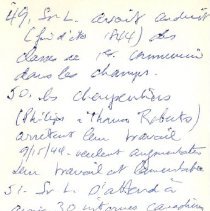 49. Sr. L. avait conduit
(fin d'été 1944) des
classes de 1ère communion
dans les champs.
50. les charpentiers
(Philips & Thomas Roberts)
arrêtent leur travail
9/15/44 - veulent augmentation
leur travail et
51. Sr. L. s'attend à
avoir 30 internes canadiens